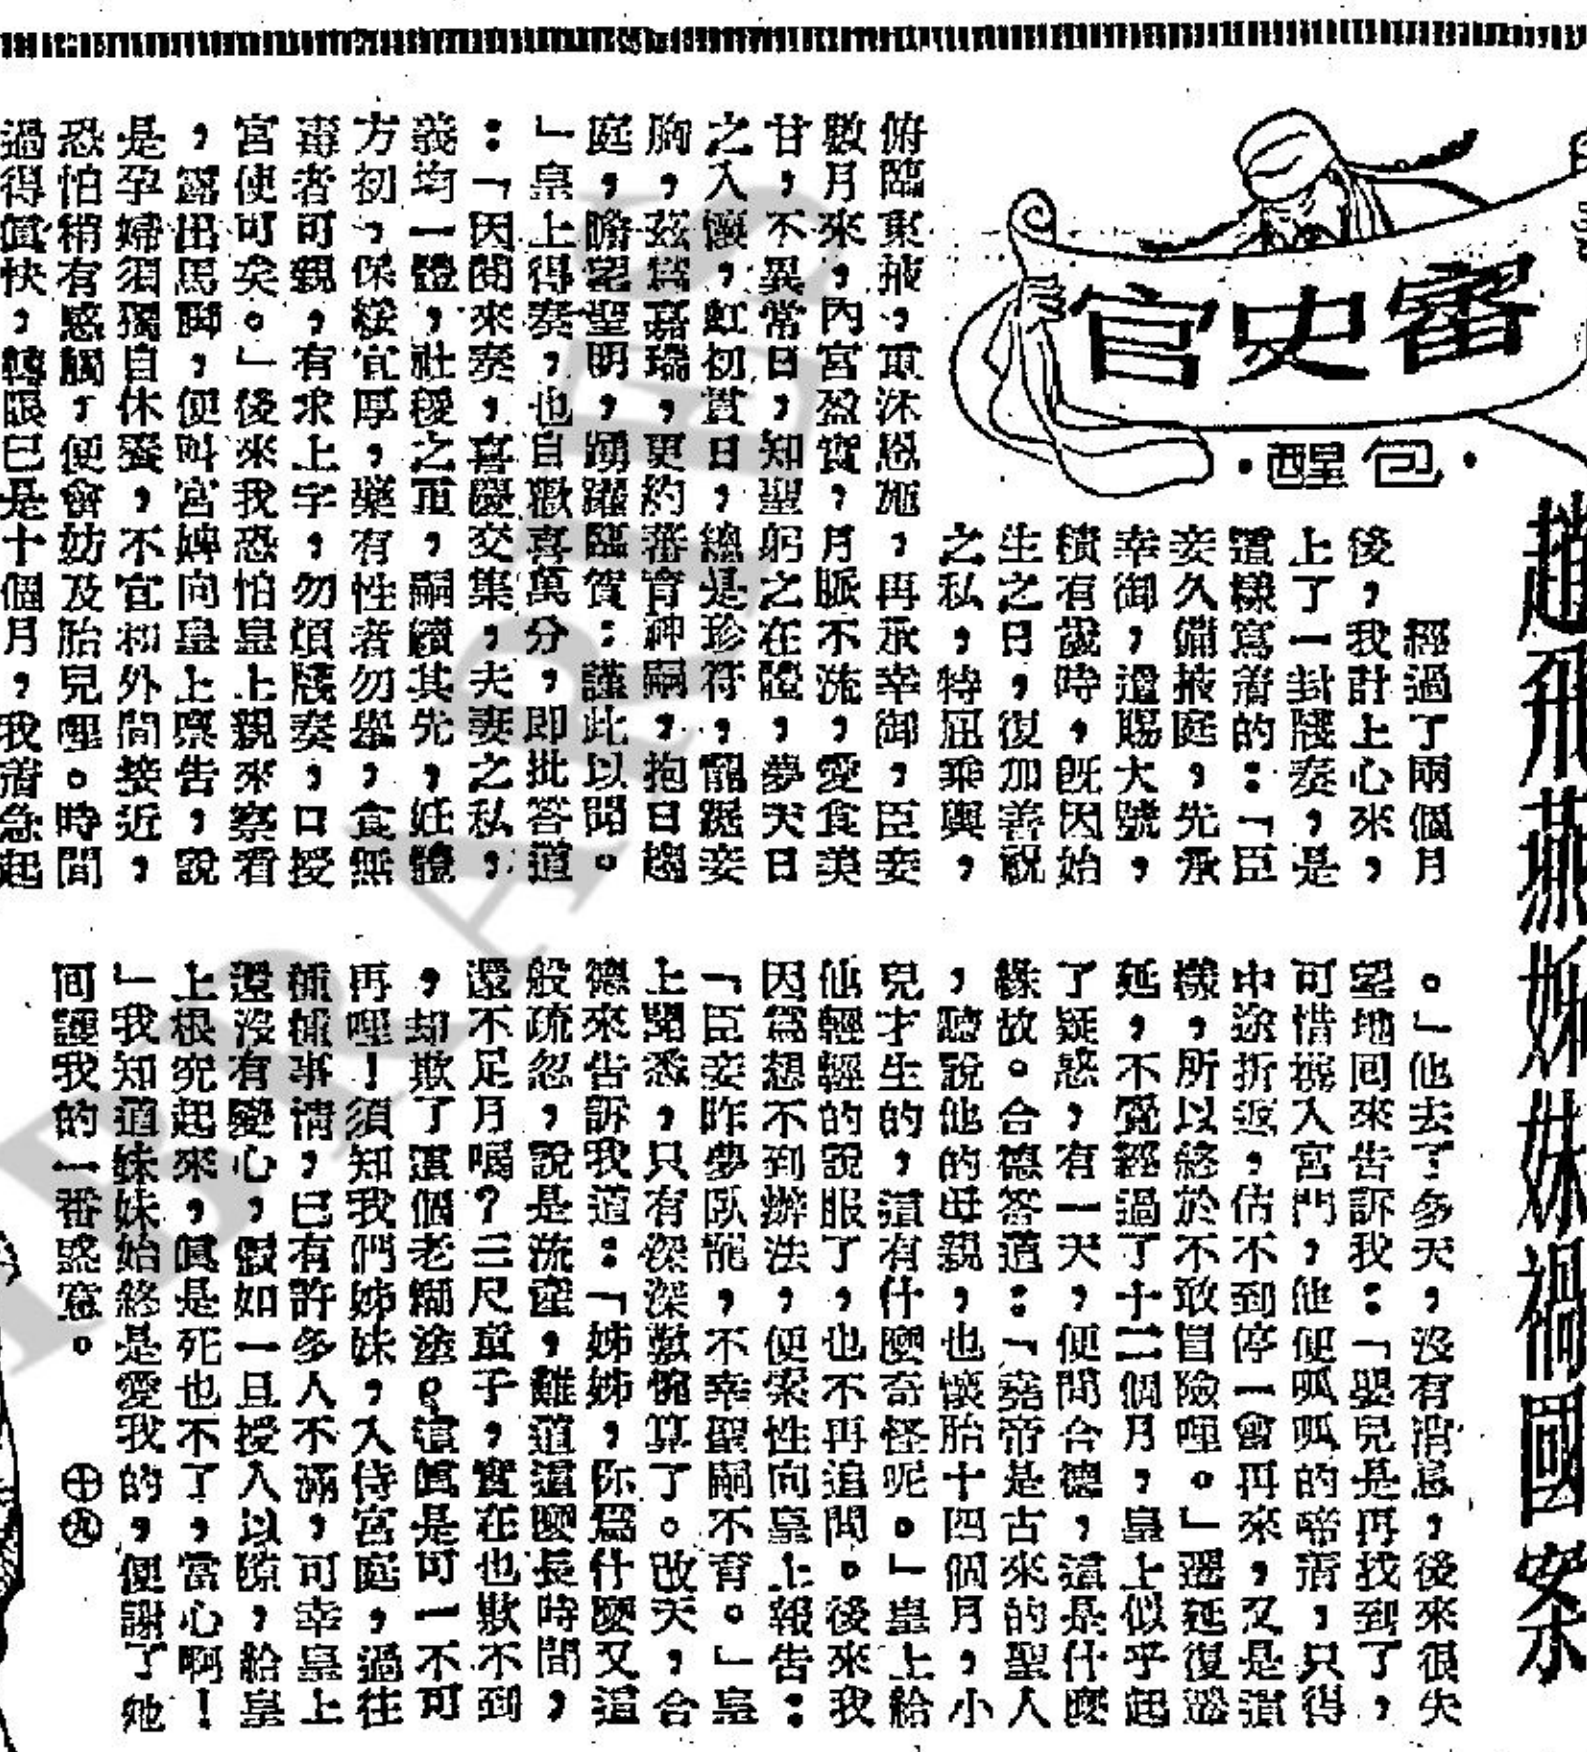 趙飛燕姊妹禍國案
審史官
·包醒·
經過了兩個月
後，我計上心來，
上了一封牋奏，是
這樣寫着的：「臣
妾久備掖庭，先承
幸御，遣賜大號，
積有歲時，既因始
生之日，復加善祝
之私，特屈乘輿，
俯臨東掖，重沐恩施，再承幸御，臣妾
數月來，內宮盈實，月脈不流，愛食美
甘，不異常日，知聖躬之在體，夢天日
之入懷，虹初貫日，總是珍符，龍踞妾
胸，茲爲嘉瑞，更約蕃育神嗣，抱日趨
庭，瞻望聖明，踴躍臨賀：謹此以聞。
」皇上得奏，也自歡喜萬分，即批答道
：「因閱來奏，喜慶交集，夫妻之私，
義均一體，社稷之重，嗣續其先，妊體
方初，保綏宜厚，藥有性者勿舉，食無
毒者可親，有求上字，勿煩牋奏，口授
宮使可矣。」後來我恐怕皇上親來察看
，露出馬脚，便叫宮婢向皇上禀告，說
是孕婦須獨自休養，不宜和外間接近，
恐怕稍有感觸，便會妨及胎兒哩。時間
過得眞快，轉眼已是十個月，我着急起
。」他去了多天，沒有消息，後來很失
望地回來告訴我：「嬰兒是再找到了，
可惜携入宮門，他便呱呱的啼着，只得
中途折返，估不到停一會再來，又是這
樣，所以終於不敢冒險哩。」遲延復遲
延，不覺經過了十二個月，皇上似乎起
了疑惑，有一天，便問合德，這是什麽
緣故。合德答道：「堯帝是古來的聖人
，聽說他的母親，也懷胎十四個月，小
兒才生的，這有什麽奇怪呢。」皇上給
他輕輕的說服了，也不再追問。後來我
因爲想不到辦法，便索性向皇上報告：
「臣妾昨夢臥龍，不幸聖嗣不育。」皇
上聞悉，只有深深歎惋算了。改天，合
德來告訴我道：「姊姊，你爲什麽又這
般疏忽，說是流產，難道這麽長時間，
還不足月嗎？三尺童子，實在也欺不到
，却欺了這個老糊塗。這眞是可一不可
再哩！須知我們姊妹，入侍宮庭，過往
樁樁事情，已有許多人不滿，可幸皇上
還沒有變心，假如一旦授人以隙，給皇
上根究起來，眞是死也不了，當心啊！
」我知道妹妹始終是愛我的，便謝了她
回護我的一番盛意。　㊉㊈
BRARIES